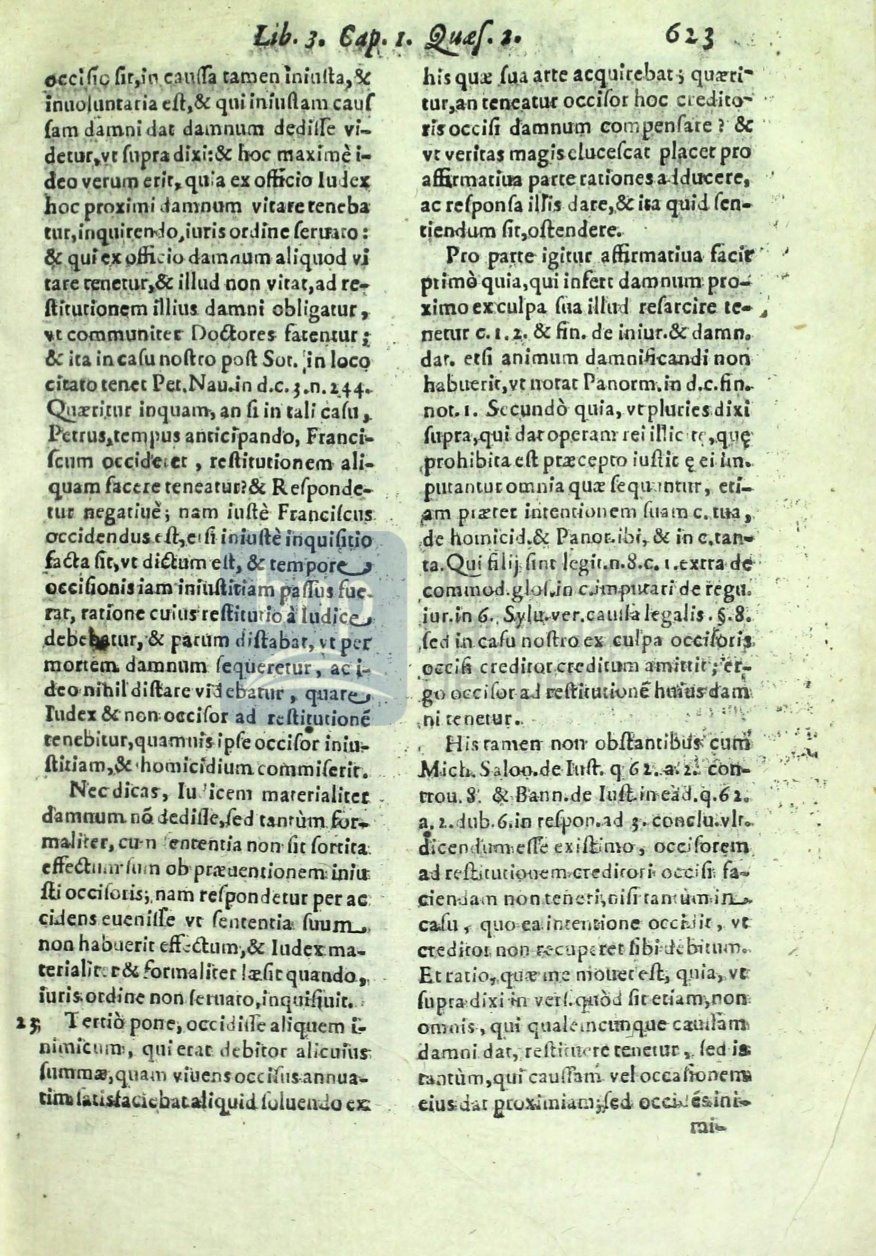 Lib. 3. Cap. 1. Quæs. 2. 623
occisio sit, in caussa tamen iniusta, &
inuoluntaria est, & qui iniustam caus
sam damni dat damnum dedisse vi-
detur, vt supra dixi: & hoc maximè i-
deo verum erit, quia ex officio Iudex
hoc proximi damnum vitare teneba
tur, inquirendo, iuris ordine seruato:
& qui ex officio damnum aliquod vi
tare tenetur, & illud non vitat, ad re-
stitutionem illius damni obligatur,
vt communiter Doctores fatentur;
& ita in casu nostro post Sot. in loco
citato tenet Pet. Nau. in d.c. 3. n. 244.
Quæritur inquam, an si in tali casu,
Petrus, tempus anticipando, Franci-
scum occideret, restitutionem ali-
quam facere teneatur? & Responde-
tur negatiuè; nam iustè Franciscus
occidendus est, etsi iniustè inquisitio
facta sit, vt dictum est, & tempore
occisionis iam iniustitiam passus fue-
rat, ratione cuius restitutio à Iudice
debebatur, & parum distabat, vt per
mortem damnum sequeretur, ac i-
deo nihil distare videbatur, quare
Iudex & non occisor ad restitutionẽ
tenebitur, quamuis ipse occisor iniu-
stitiam, & homicidium commiserit.
Nec dicas, Iudicem materialiter
damnum nõ dedisse, sed tantùm for-
maliter, cum sententia non sit sortita
effectum suum ob præuentionem iniu
sti occisoris; nam respondetur per ac
cidens euenisse vt sententia suum
non habuerit effectum, & Iudex ma-
terialiter & formaliter læsit quando,
iuris ordine non seruato, inquisiuit.
25 Tertiò pone, occidisse aliquem i-
nimicum, qui erat debitor alicuius
summæ, quam viuens occisus annua-
tim satisfaciebat aliquid soluendo ex
his quæ sua arte acquirebat; quæri-
tur, an teneatur occisor hoc credito-
ris occisi damnum compensare? &
vt veritas magis elucescat placet pro
affirmatiua parte rationes adducere,
ac responsa illis dare, & ita quid sen-
tiendum sit, ostendere.
Pro parte igitur affirmatiua facit
primò quia, qui infert damnum pro-
ximo ex culpa sua illud resarcire te-
netur c. 1. 2. & fin. de iniur. & damn.
dat. etsi animum damnificandi non
habuerit, vt notat Panorm. in d.c. fin.
not. 1. Secundò quia, vt pluries dixi
supra, qui dat operam rei illicitę, quę
prohibita est præcepto iustitię ei im-
putantur omnia quæ sequuntur, eti-
am præter intentionem suam c. tua,
de homicid. & Panor. ibi, & in c. tan-
ta. Qui filij sint legit. n. 8. c. 1. extra de
commod. glos. in c. imputari de regu.
iur. in 6. Sylu. ver. caussa legalis. §. 8.
sed in casu nostro ex culpa occisoris
occisi creditor creditum amittit; er-
go occisor ad restitutionẽ huius dam
ni tenetur.
His tamen non obstantibus cum
Mich. Salon. de Iust. q 62. a. 2. con-
trou. 8. & Bann. de Iust. in ead. q. 62.
a. 2. dub. 6. in respon. ad 3. conclu. vlt.
dicendum esse existimo, occisorem
ad restitutionem creditori occisi fa-
ciendam non teneri, nisi tantùm in
casu, quo ea intentione occidit, vt
creditor non recuperet sibi debitum.
Et ratio, quæ me mouet est, quia, vt
supra dixi in vers. quòd sit etiam, non
omnis, qui qualemcunque caussam
damni dat, restituere tenetur, sed is
tantùm, qui caussam vel occasionem
eius dat proximiam; sed occidẽs ini-
mi-